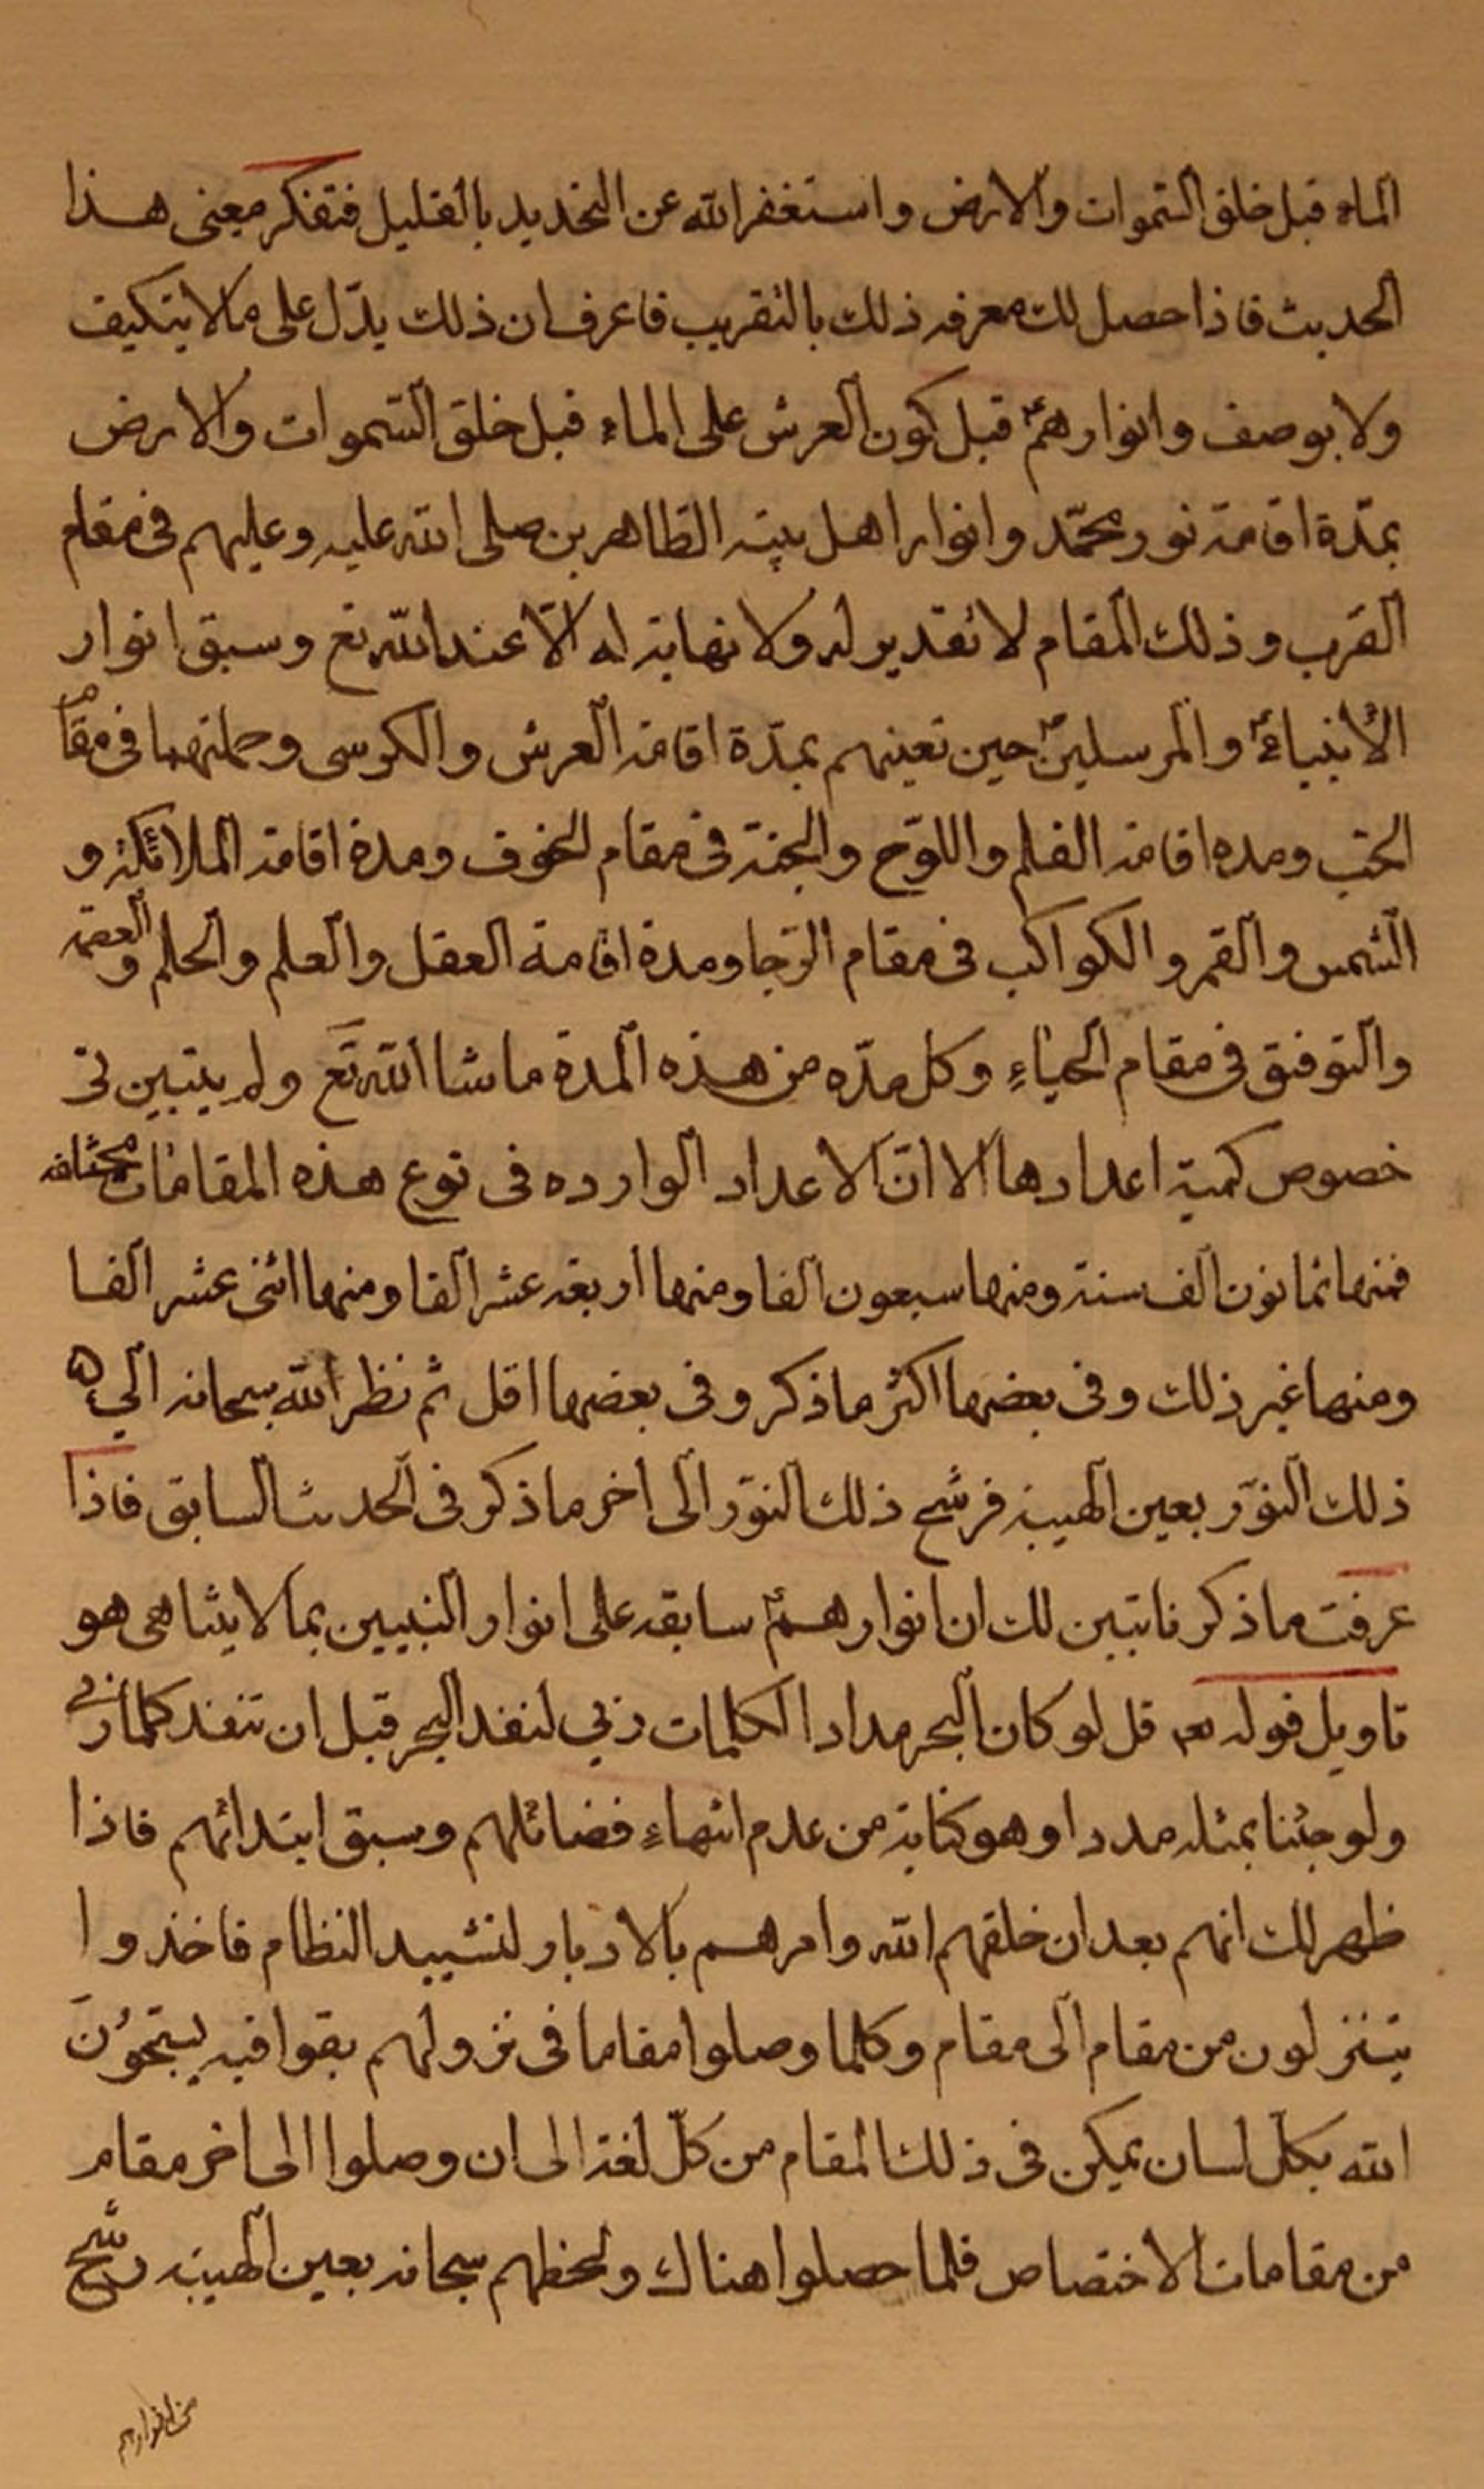 الماء قبل خلق السّموات والارض واستغفر الله عن التحديد بالقليل فتفكر معنى هذا
الحديث فاذا حصل لك معرفه ذلك بالتقريب فاعرف ان ذلك يدّل على ما لا يتكيف
ولا يوصف وانوارهمؑ قبل كون العرش على الماء قبل خلق السّموات والارض
بمدّة اقامة نور محمّد وانوار اهل بيته الطّاهرين صلى الله عليه وعليهم فى مقام
القرب وذلك المقام لا تقدير له ولا نهاية له الّا عند الله تع وسبق انوار
الأنبياءؑ والمرسلينؑ حين تعينهم بمدّة اقامة العرش والكرسى وحملتهما فى مقام
الحبّ ومده اقامة القلم واللوّح والجنة فى مقام الخوف ومدة اقامة الملائكة و
الشمس والقمر والكواكب فى مقام الرّجا ومدة اقامة العقل والعلم والحلم والعصمة
والتوفيق فى مقام الحياءِ وكل مدّه من هذه المدة ما شا الله تع ولم يتبين لى
خصوص كميّة اعدادها الا انّ الاعداد الوارده فى نوع هذه المقامات مختلفه
فمنها ثمانون الف سنة ومنها سبعون الفا ومنها اربعه عشر الفا ومنها اثنى عشر الفا
ومنها غير ذلك وفى بعضها اكثر ما ذكر وفى بعضها اقل ثم نظر الله سبحانه الى
ذلك النوّر بعين الهيبة فرشح ذلك النوّر الى اخر ما ذكر فى الحديث السابق فاذا
عرفت ما ذكرنا تبين لك ان انوارهمؑ سابقه على انوار النبيين بما لا يتناهى هو
تاويل قوله تع قل لو كان البحر مدادا لكلمات ربي لنفد البحر قبل ان تنفد كلمات ربي
ولو جئنا بمثله مددا وهو كناية من عدم انتهاءِ فضائلهم وسبق ابتدائهم فاذا
ظهر لك انهم بعد ان خلقهم الله وامرهم بالادبار لتشييد النظام فاخذوا
يتنزلون من مقام الى مقام وكلما وصلوا مقاما فى نزولهم بقوا فيه يسبّحونَ
الله بكلّ لسان يمكن فى ذلك المقام من كلّ لغة الى ان وصلوا الى اخر مقام
من مقامات الاختصاص فلما حصلوا هناك ولحظهم سبحانه بعين الهيبة رشّح
من انوارهم